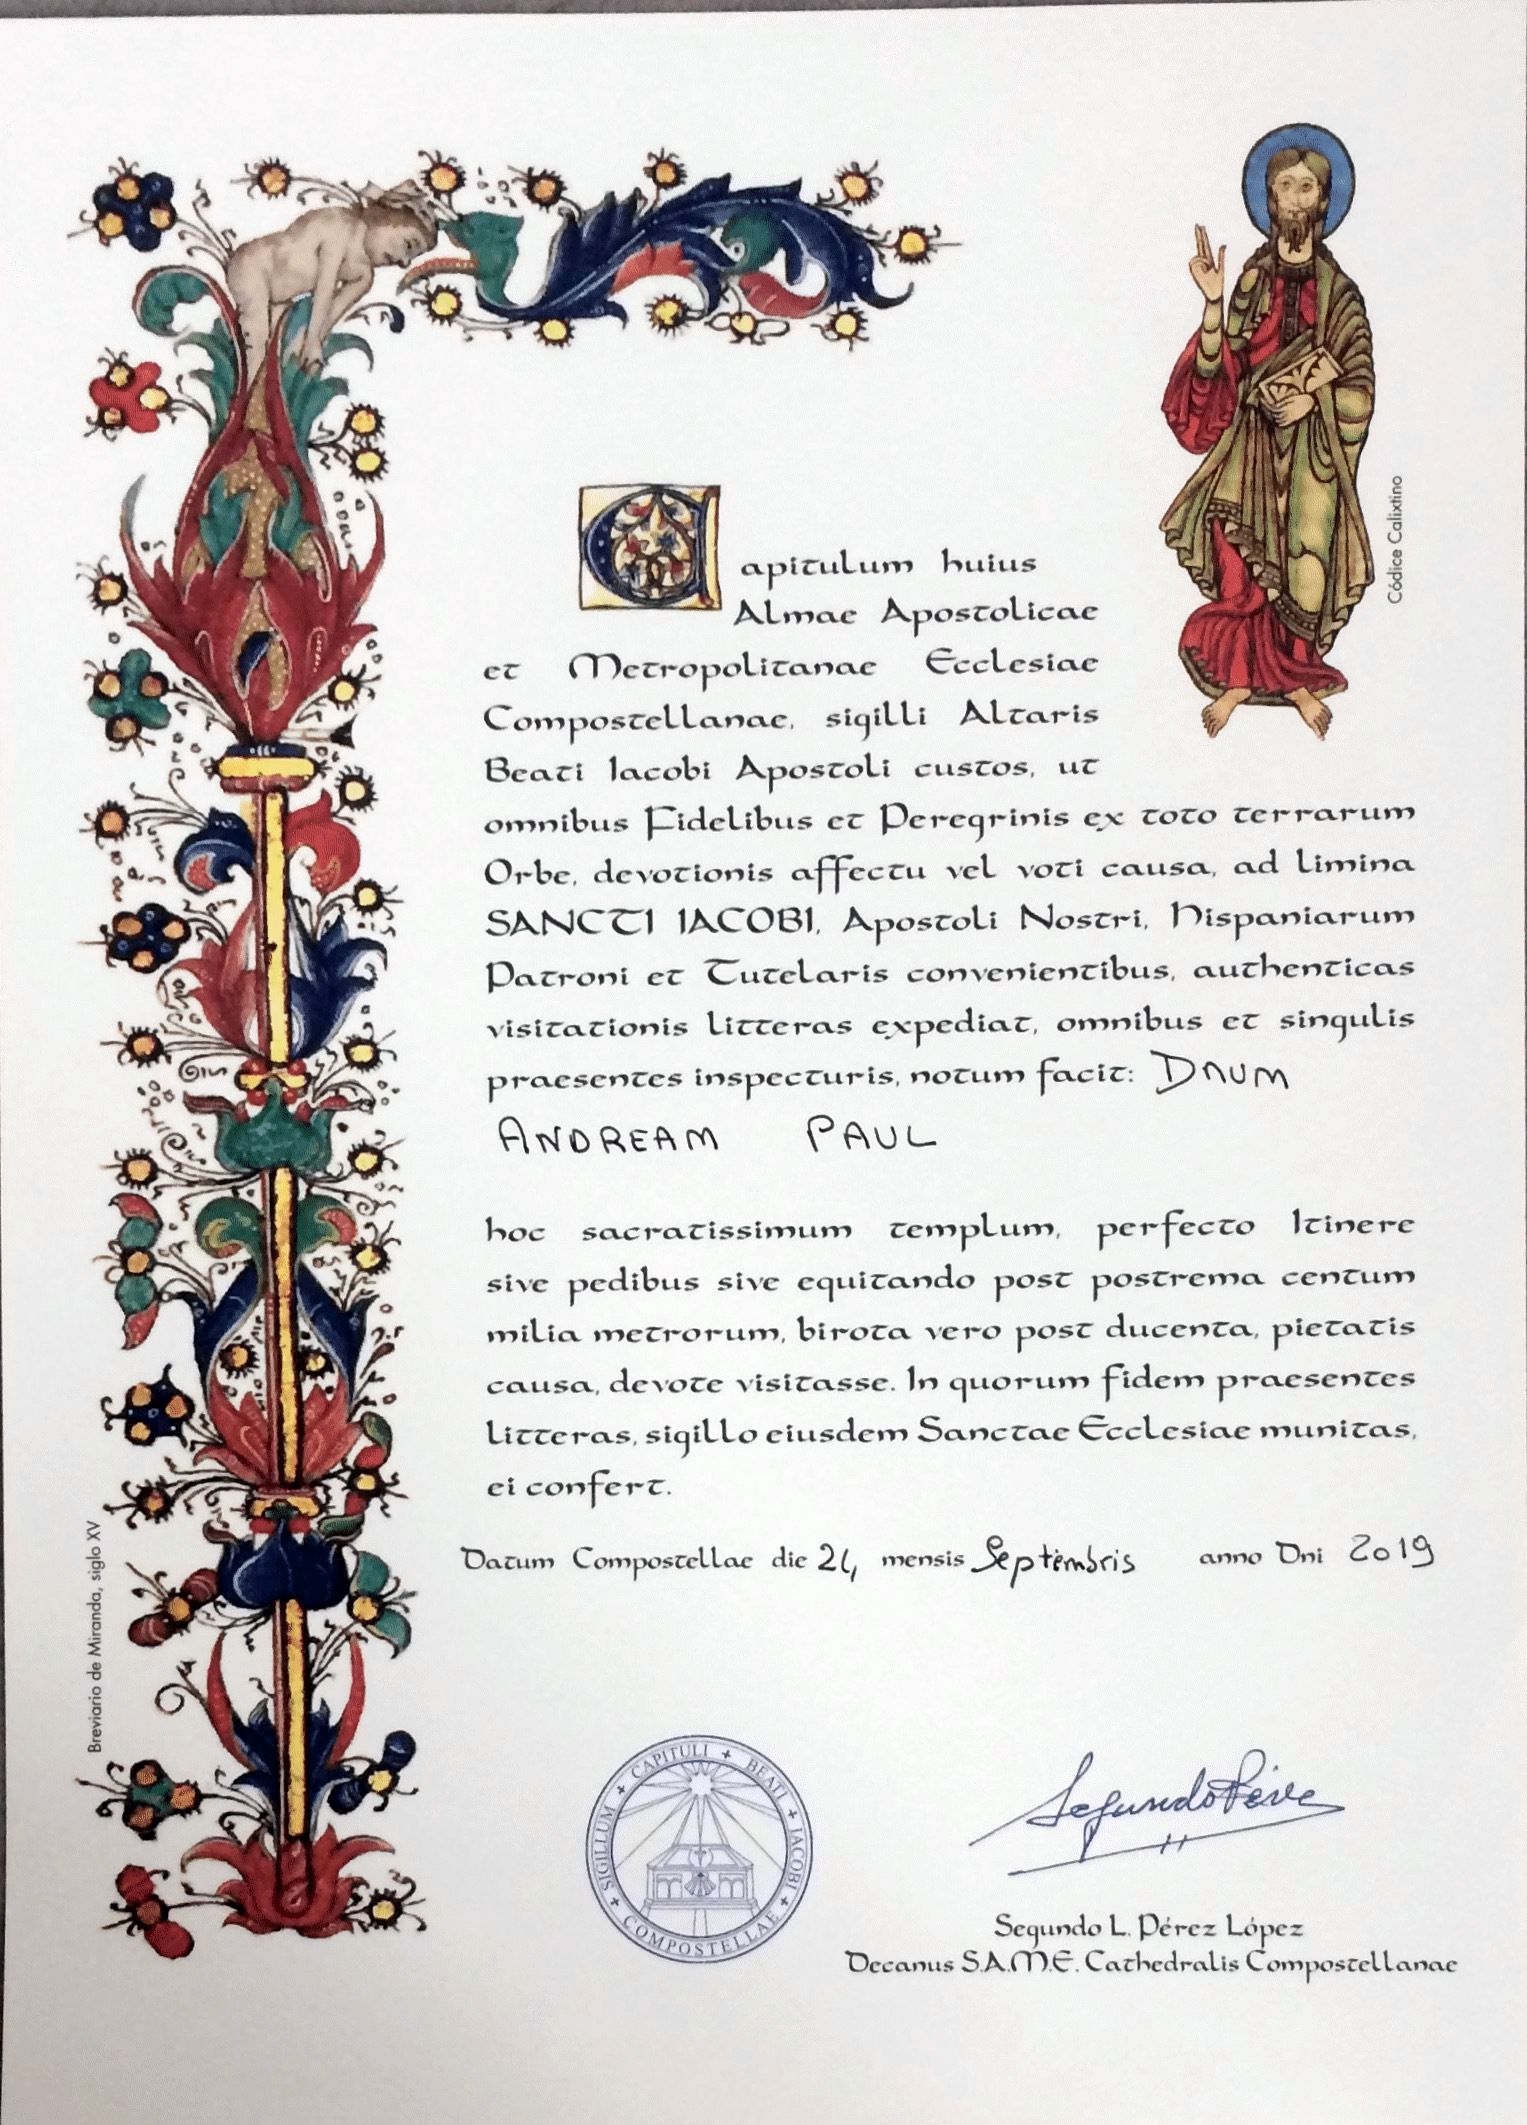 Capitulum huius
Almae Apostolicae
et Metropolitanae Ecclesiae
Compostellanae, sigilli Altaris
Beati Iacobi Apostoli custos, ut
omnibus Fidelibus et Peregrinis ex toto terrarum
Orbe, devotionis affectu vel voti causa, ad limina
SANCTI IACOBI, Apostoli Nostri, Hispaniarum
Patroni et Tutelaris convenientibus, authenticas
visitationis litteras expediat, omnibus et singulis
praesentes inspecturis, notum facit: DNUM
ANDREAM PAUL
hoc sacratissimum templum, perfecto Itinere
sive pedibus sive equitando post postrema centum
milia metrorum, birota vero post ducenta, pietatis
causa, devote visitasse. In quorum fidem praesentes
litteras, sigillo eiusdem Sanctae Ecclesiae munitas,
ei confert.
Datum Compostellae die 24 mensis Septembris anno Dni 2019
SIGILLUM + CAPITULI + BEATI + IACOBI + COMPOSTELLAE +
Segundo Pérez
Segundo L. Pérez López
Decanus S.A.M.E. Cathedralis Compostellanae
Códice Calixtino
Breviario de Miranda, siglo XV